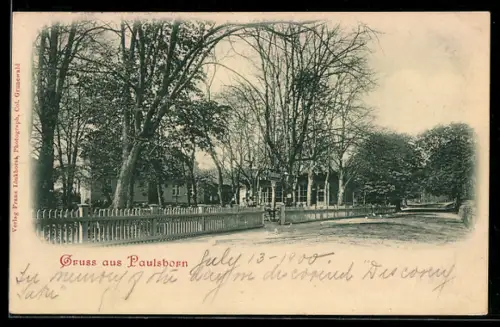 Verlag Franz Linkhorst, Photograph, Col. Grunewald
Gruss aus Paulsborn
July 13-1900.
In memory of the day on discovered "Discovery